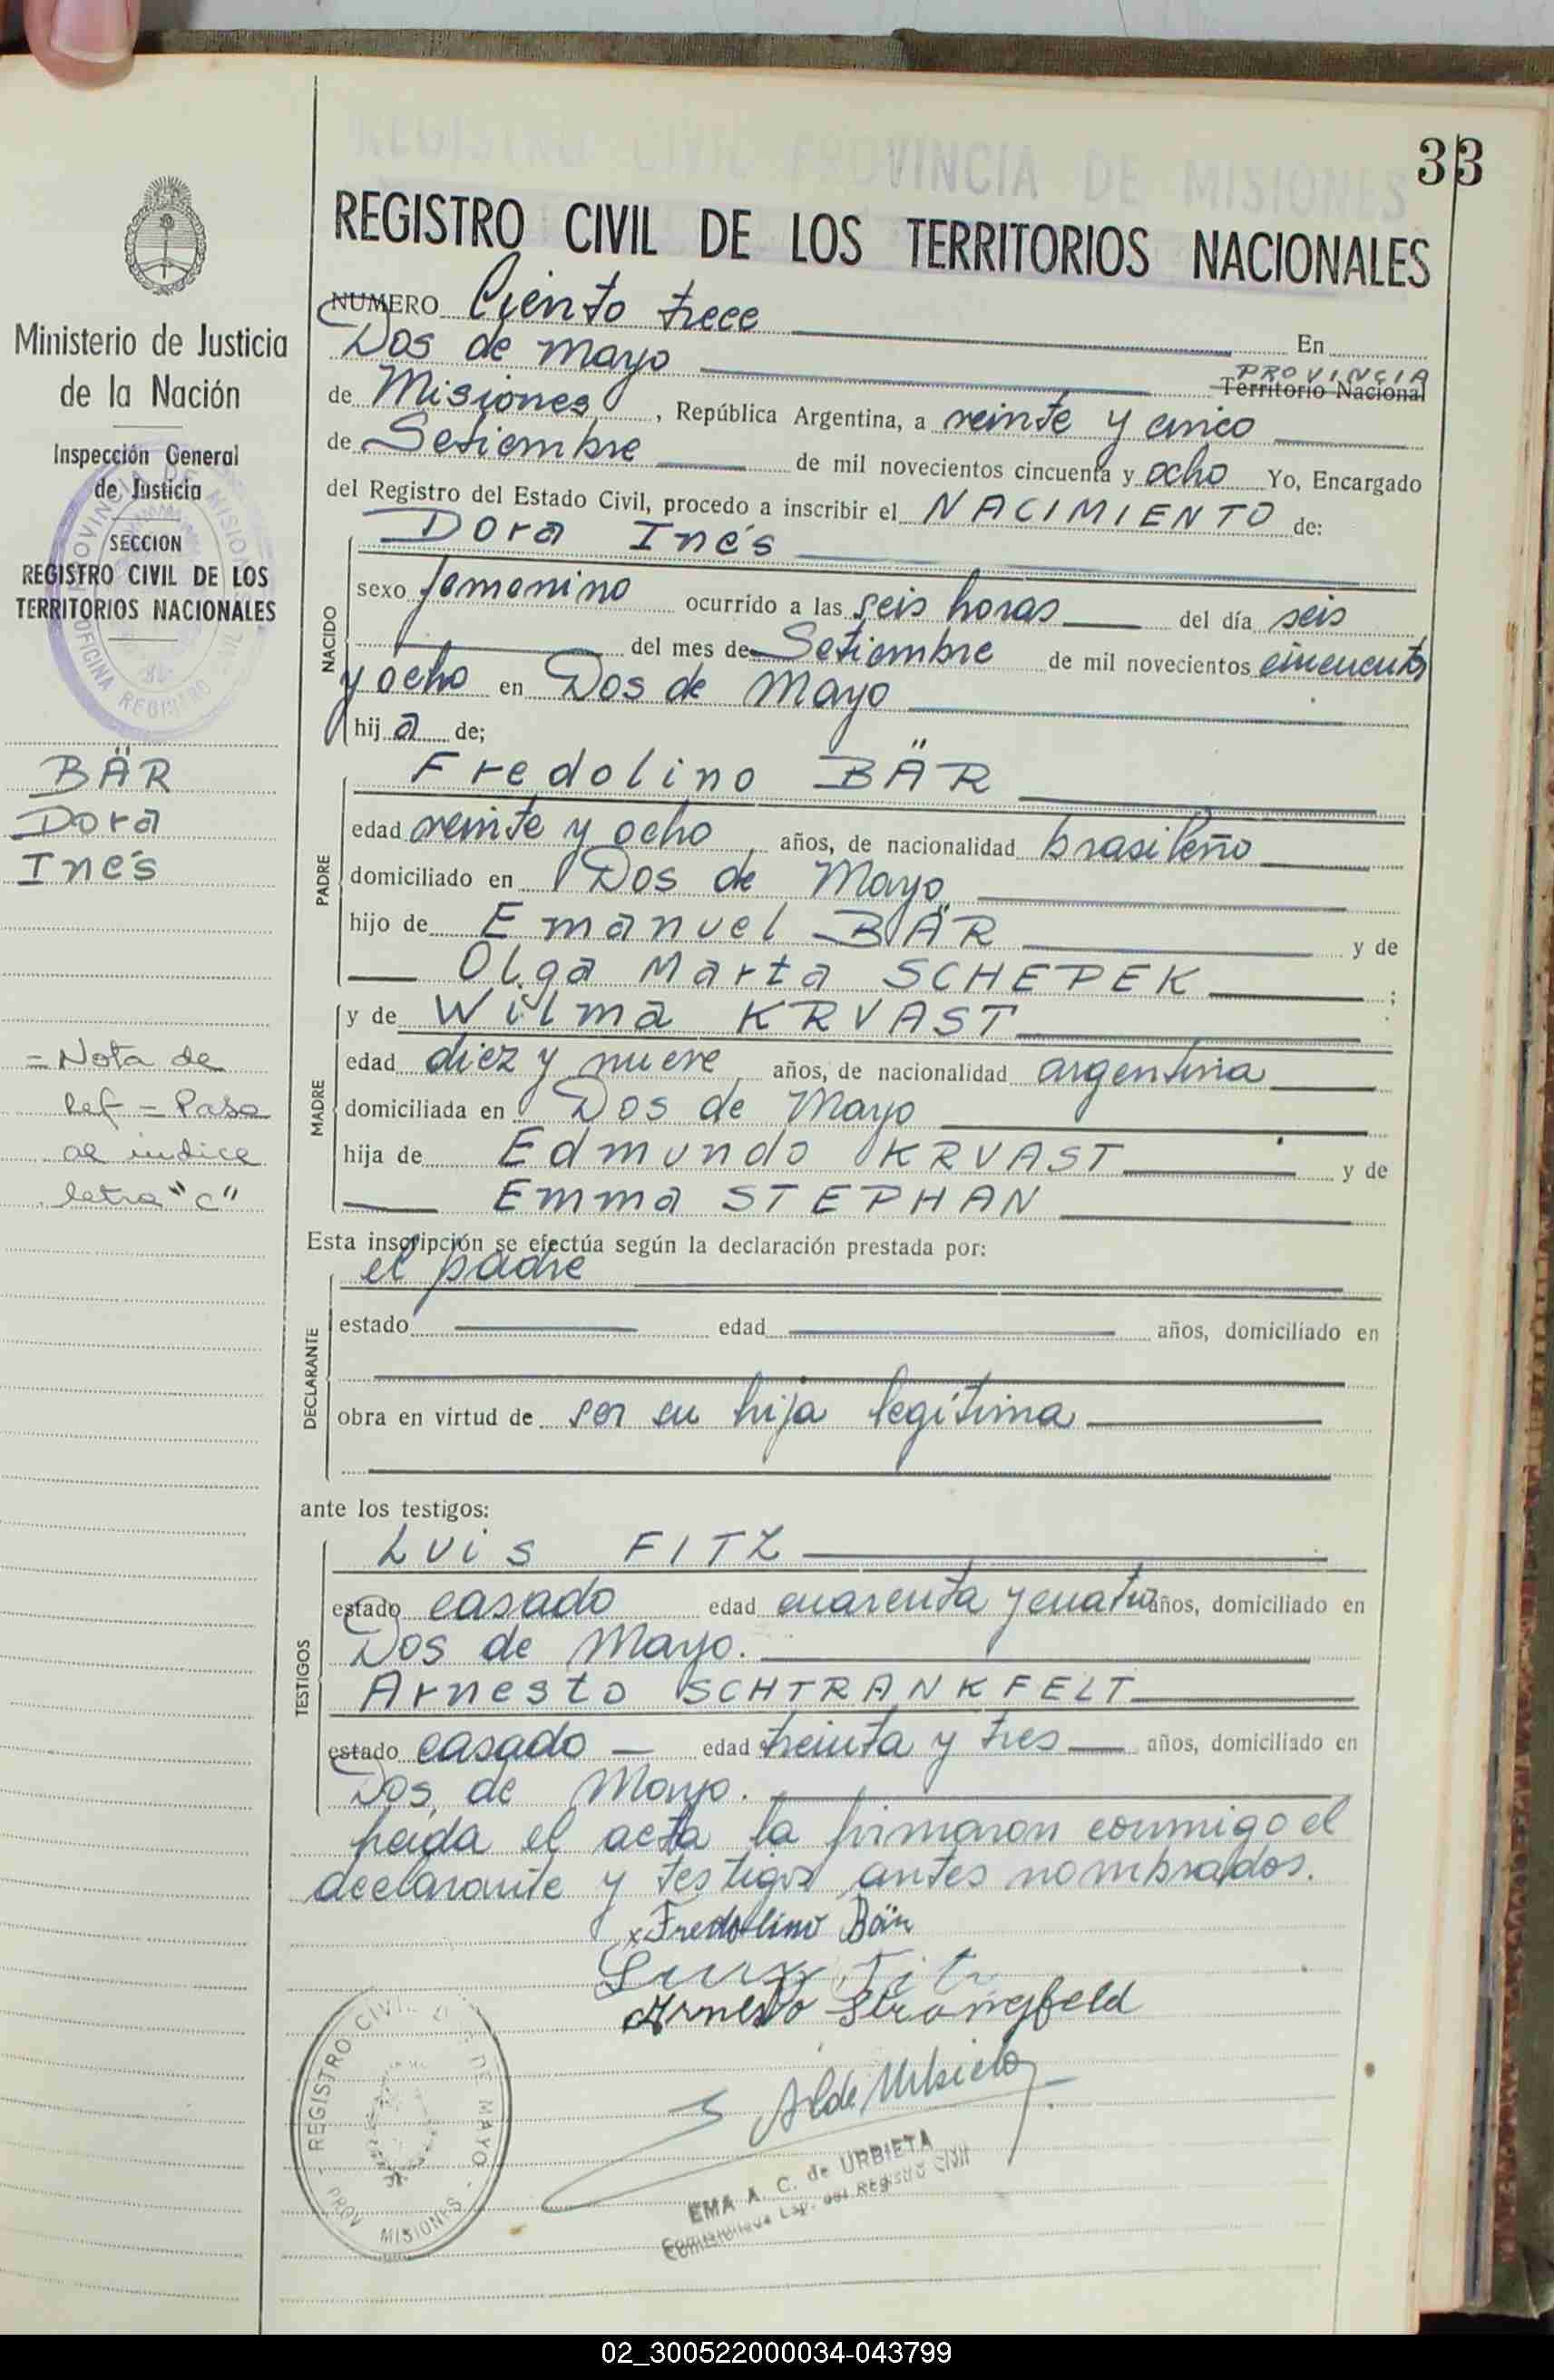 33
REGISTRO CIVIL PROVINCIA DE MISIONES
REGISTRO CIVIL DE LOS TERRITORIOS NACIONALES
Ministerio de Justicia
de la Nación
Inspección General
de Justicia
SECCION
REGISTRO CIVIL DE LOS
TERRITORIOS NACIONALES
PROVINCIA MISIONES OFICINA REGISTRO CIVIL
BÄR
Dora
Inés
= Nota de
Ref = Pasa
al indice
letra "C"
NUMERO Ciento trece En
Dos de Mayo PROVINCIA Territorio Nacional
de Misiones, República Argentina, a veinte y cinco
de Setiembre de mil novecientos cincuenta y ocho Yo, Encargado
del Registro del Estado Civil, procedo a inscribir el NACIMIENTO de:
NACIDO
Dora Inés
sexo femenino ocurrido a las seis horas del día seis
del mes de Setiembre de mil novecientos cincuenta
y ocho en Dos de Mayo
hij a de;
PADRE
Fredolino BÄR
edad veinte y ocho años, de nacionalidad brasileño
domiciliado en Dos de Mayo
hijo de Emanuel BÄR y de
Olga Marta SCHEPEK ;
MADRE
y de Wilma KRVAST
edad diez y nueve años, de nacionalidad argentina
domiciliada en Dos de Mayo
hija de Edmundo KRVAST y de
Emma STEPHAN
Esta inscripción se efectúa según la declaración prestada por:
DECLARANTE
el padre
estado edad años, domiciliado en
obra en virtud de ser su hija legítima
ante los testigos:
TESTIGOS
Luis FITZ
estado casado edad cuarenta y cuatro años, domiciliado en
Dos de Mayo.
Arnesto SCHTRANKFELT
estado casado edad treinta y tres años, domiciliado en
Dos de Mayo.
heida el acta la firmaron conmigo el
declarante y testigos antes nombrados.
x Fredolino Bär
Luiz Fitz
Arnesto Strangfeld
A de Urbieta
EMA A. C. de URBIETA
del Registro Civil
REGISTRO CIVIL DOS DE MAYO - PROV MISIONES -
02_300522000034-043799